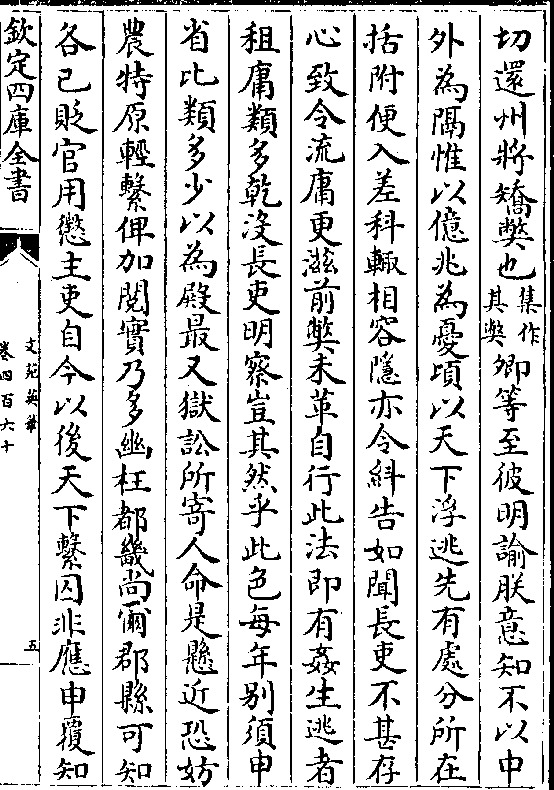 切還州將矯弊也集作其弊卿等至彼明諭朕意知不以中
外為隔惟以億兆為憂頃以天下浮逃先有處分所在
括附便入差科輙相容隱亦令糾告如聞長吏不甚存
心致令流庸更滋前弊未革自行此法即有姦生逃者
租庸類多乾沒長吏明察豈其然乎此色每年别須申
省比類多少以為殿最又獄訟所寄人命是懸近恐妨
農特原輕繫俾加閱實乃多幽枉都畿尚爾郡縣可知
各已貶官用懲主吏自今以後天下繫囚非應申覆知
欽定四庫全書
文苑英華
卷四百六十
五